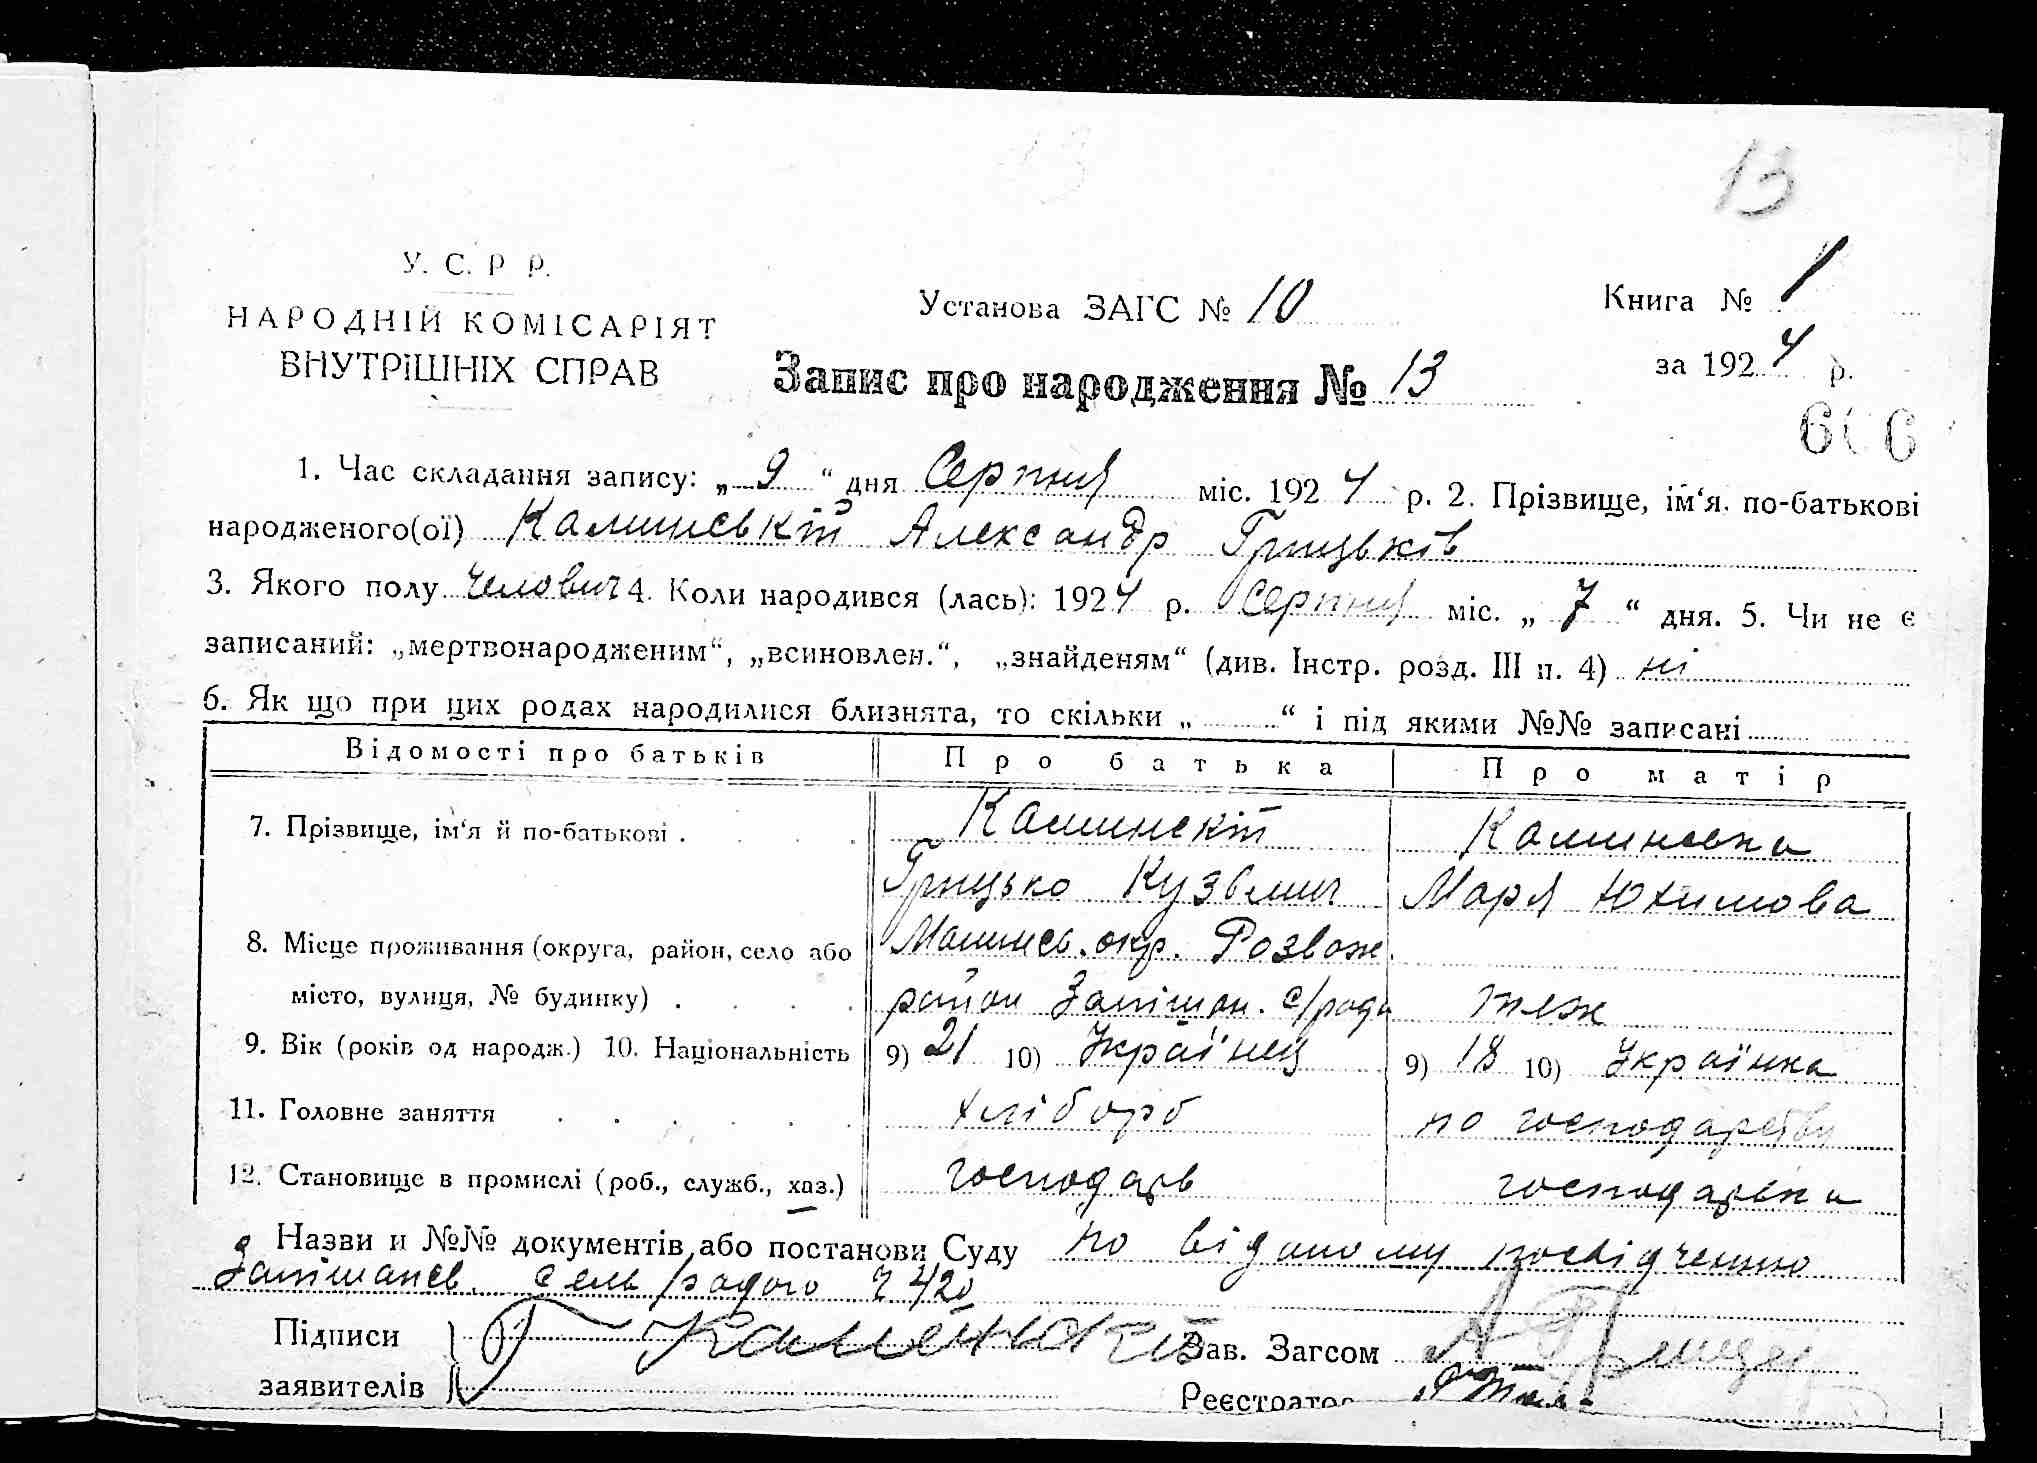 13
У. С. Р Р.
НАРОДНІЙ КОМІСАРІЯТ
ВНУТРІШНІХ СПРАВ
Установа ЗАГС № 10
Книга № 1
за 1924 р.
Запис про народження № 13
606
1. Час складання запису: „ 9 “ дня Серпня міс. 1924 р. 2. Прізвище, ім‘я. по-батькові
народженого(ої) Калинський Александр Грицьків
3. Якого полу Челович 4. Коли народився (лась): 1924 р. Серпня міс. „ 7 “ дня. 5. Чи не є
записаний: „мертвонародженим“, „всиновлен.“, „знайденям“ (див. Інстр. розд. III п. 4) ні
6. Як що при цих родах народилися близнята, то скільки „ “ і під якими №№ записані
Відомості про батьків Про батька Про матір
7. Прізвище, ім‘я й по-батькові . Калинскій Калинська
Грицько Кузьмич Марія Юхимова
8. Місце проживання (округа, район, село або Малинсь. окр. Розваж.
місто, вулиця, № будинку) . район с/рада теж
9. Вік (років од народж.) 10. Національність 9) 21 10) Українец 9) 18 10) Українка
11. Головне заняття хлібороб по господарству
12. Становище в промислі (роб., служб., хаз.) господарь господарька
Назви и №№ документів або постанови Суду по посвідченню
сель/радою Ч 420
Підписи
заявителів
Г
Зав. Загсом
Реєстратор